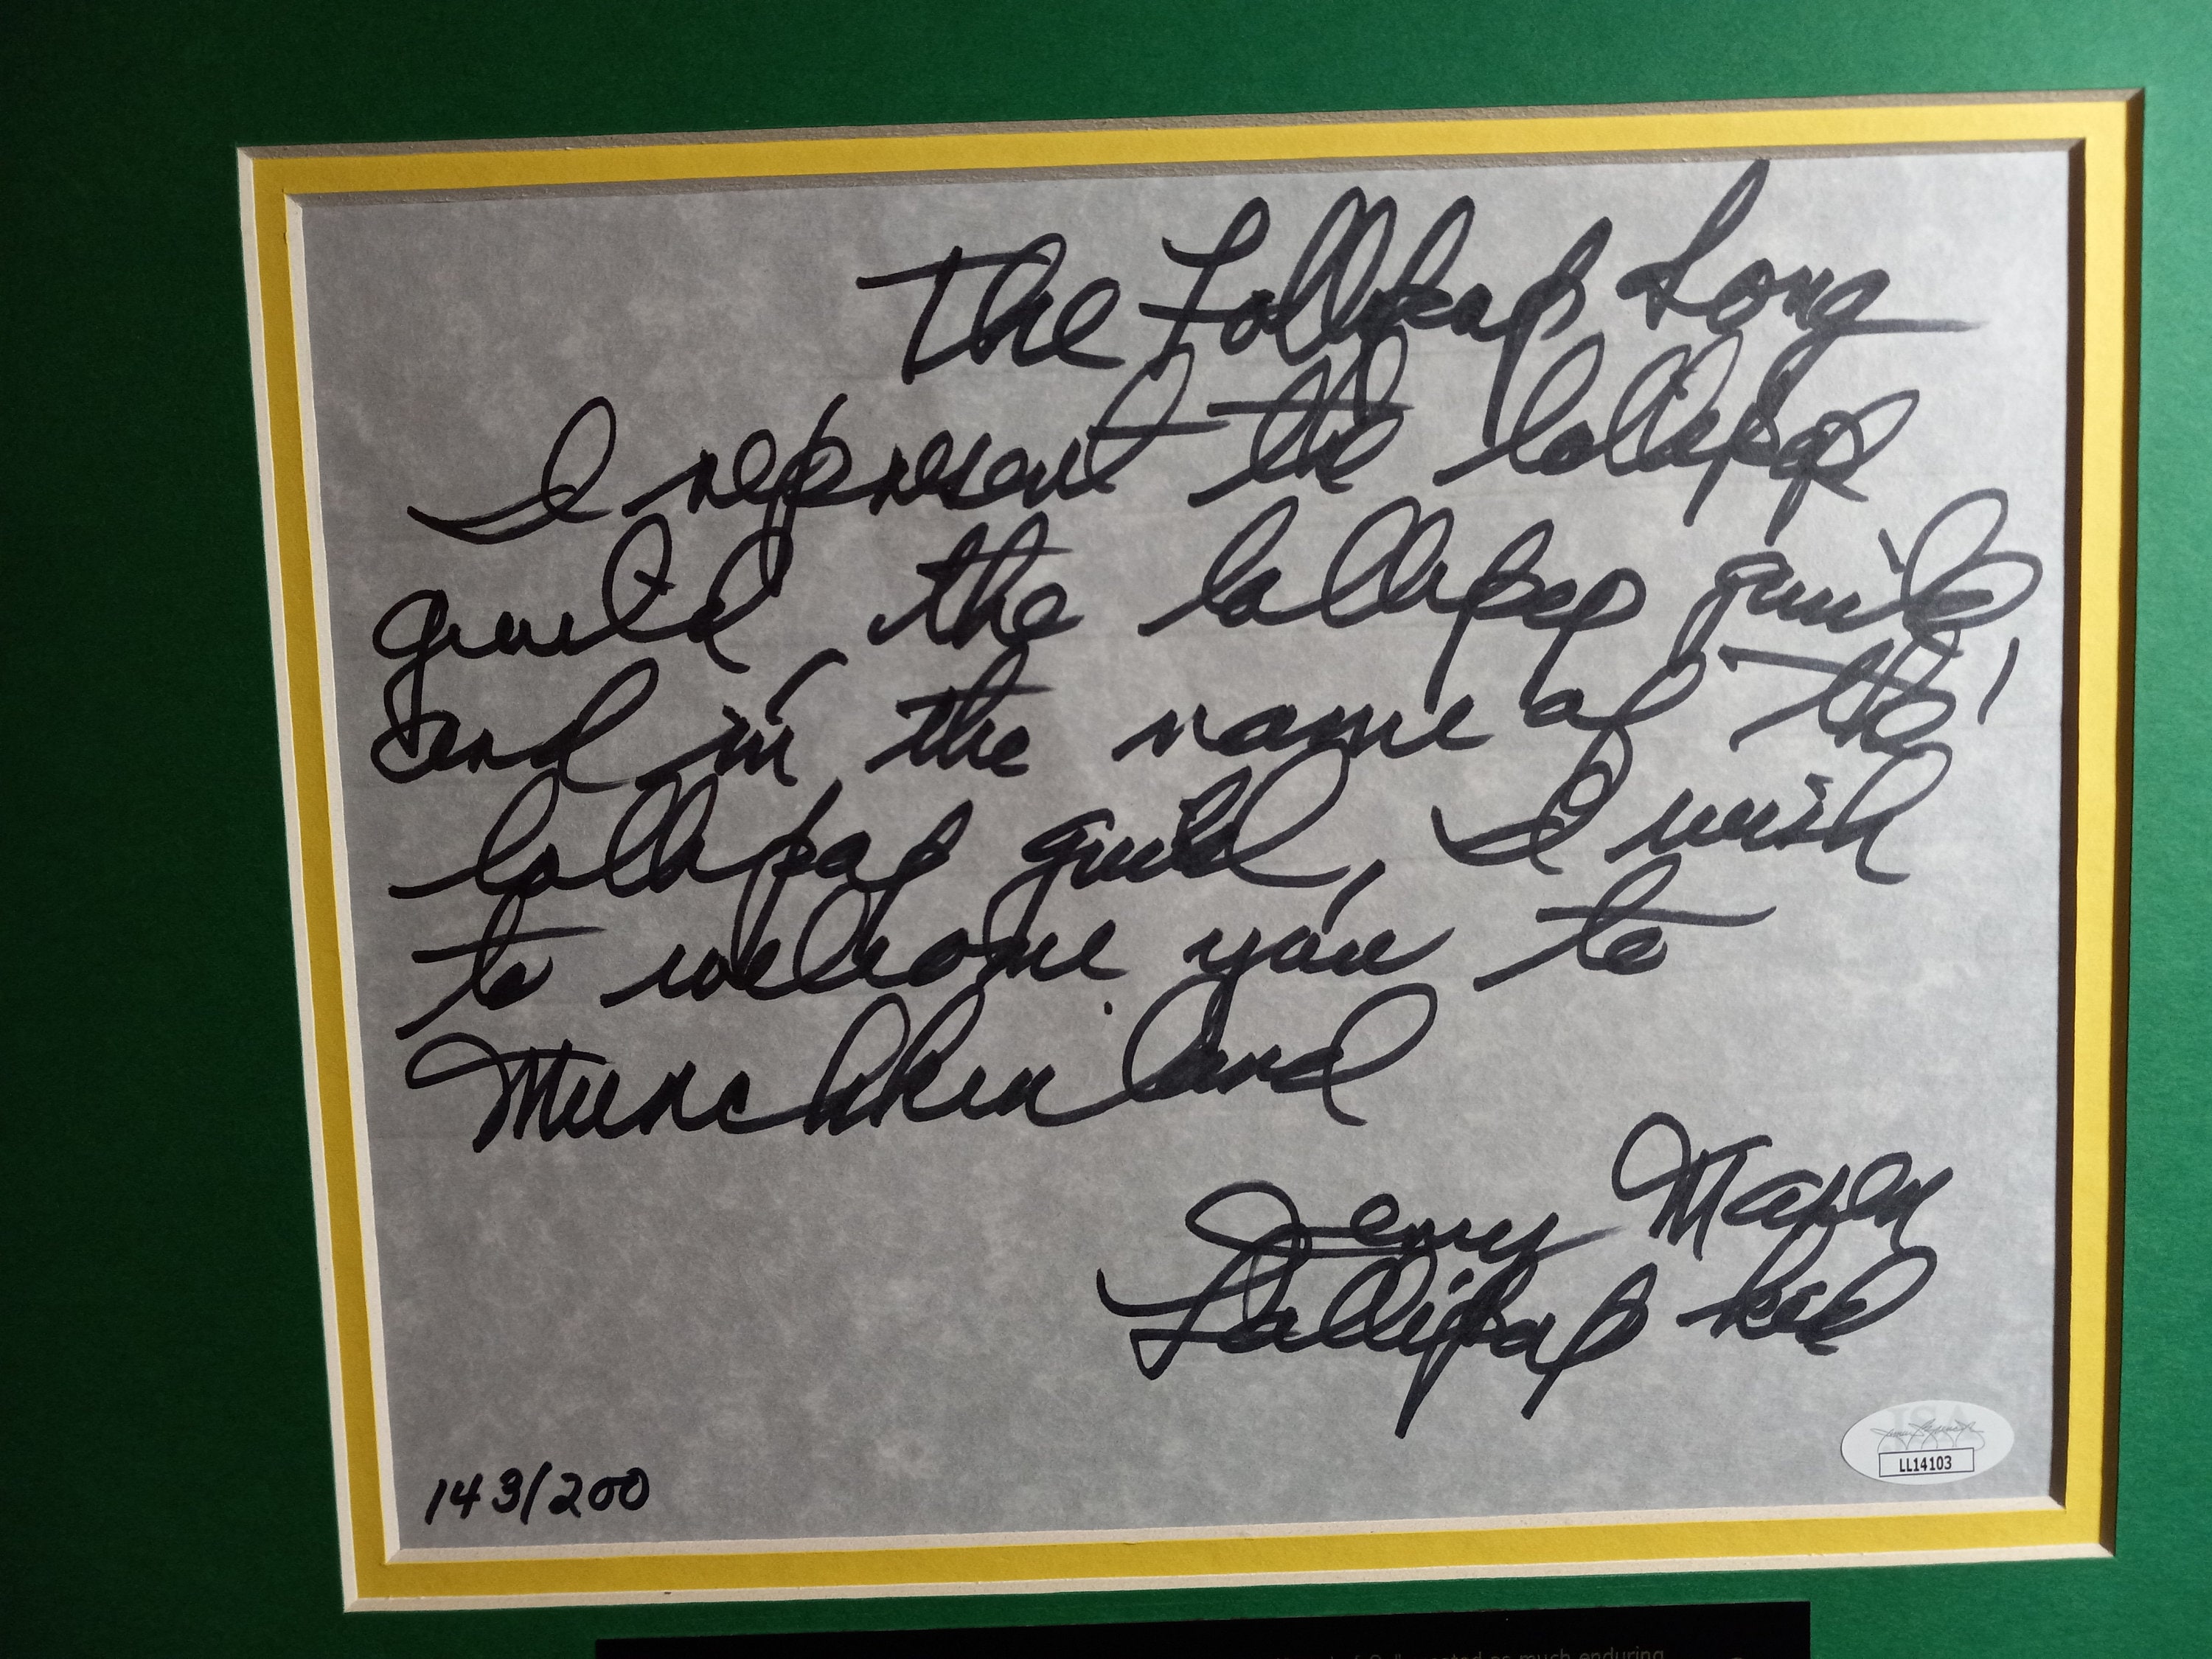 The Lollipop Song
I represent the lollipop
guild, the lollipop guild,
and in the name of the
lollipop guild, I wish
to welcome you to
Munchkin land
Jerry Maren
Lollipop kid
143/200
JSA
LL14103
as much enduring